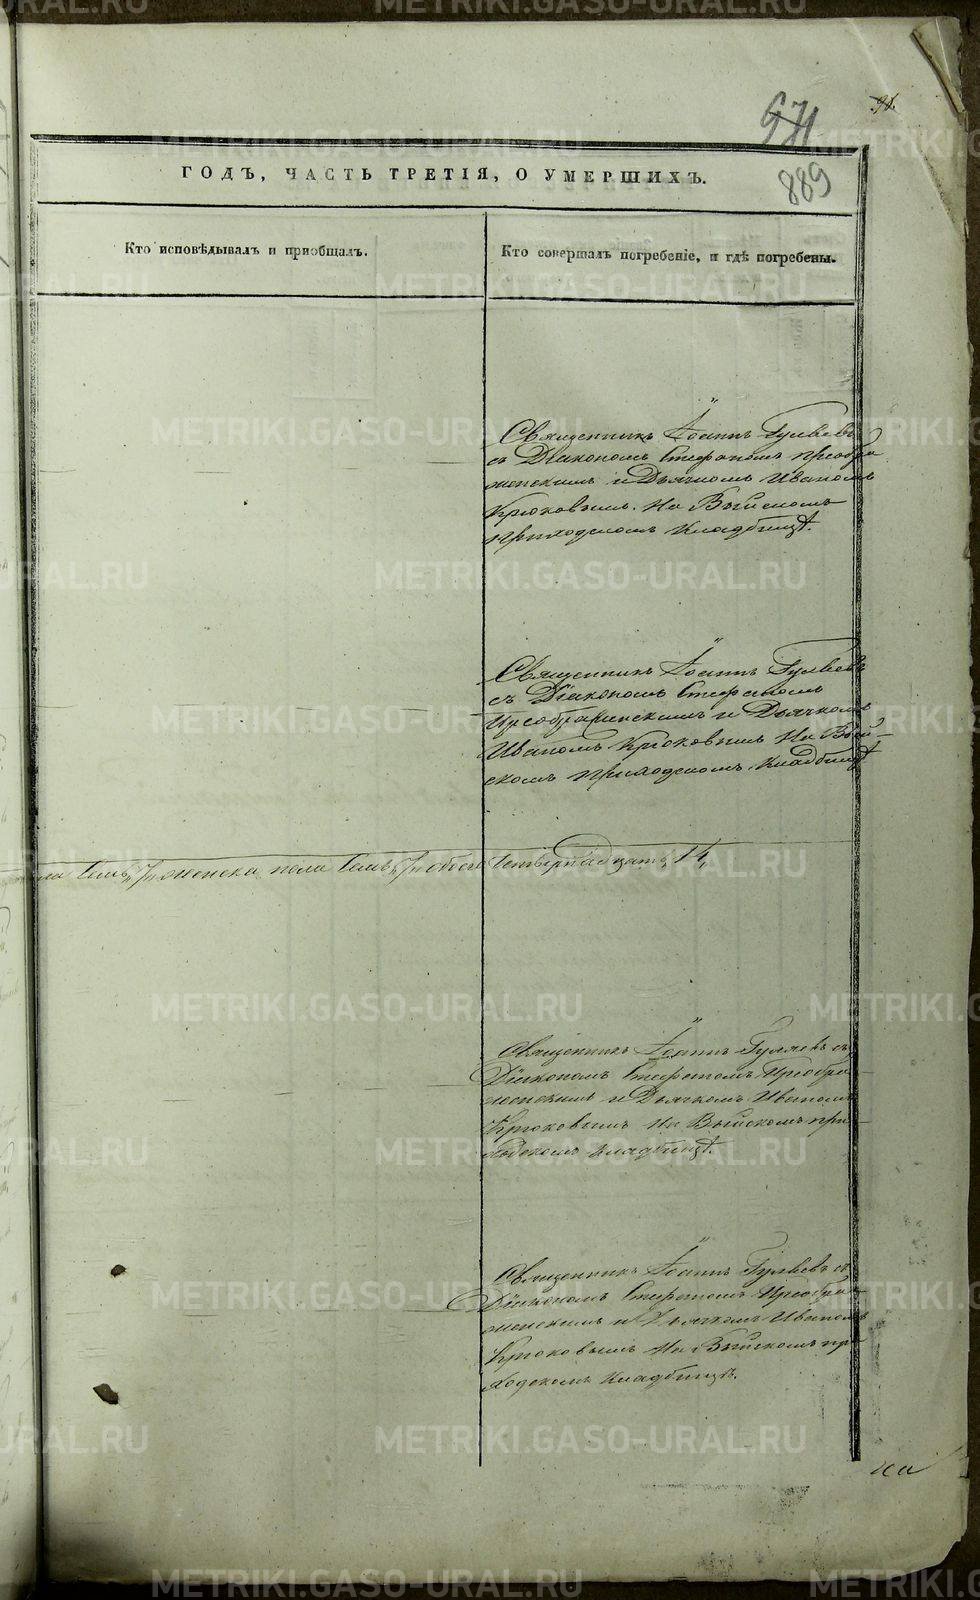 91.
571
889
ГОДЪ, ЧАСТЬ ТРЕТІЯ, О УМЕРШИХЪ.
Кто исповѣдывалъ и пріобщалъ.
Кто совершалъ погребеніе, и гдѣ погребены.
Священникъ Іоаннъ Гуляевъ
съ Діакономъ Стефаномъ преобра
женскимъ и Дьячкомъ Иваномъ
Крюковымъ. На Выйскомъ
приходскомъ кладбищѣ.
Священникъ Іоаннъ Гуляевъ
съ Діакономъ Стефаномъ
Преображенскимъ и Дьячкомъ
Иваномъ Крюковымъ На Вый-
скомъ приходскомъ кладбищѣ
ла семь, 7, женска пола семь, 7, обоего четырнадцать, 14,
Священникъ Іоаннъ Гуляевъ съ
Діакономъ Стефаномъ Преобра
женскимъ и Дьячкомъ Иваномъ
Крюковымъ На Выйскомъ при-
ходскомъ кладбищѣ.
Священникъ Іоаннъ Гуляевъ съ
Діакономъ Стефаномъ Преобра-
женскимъ и Дьячкомъ Иваномъ
Крюковымъ На Выйскомъ при
ходскомъ кладбищѣ.
METRIKI.GASO-URAL.RU